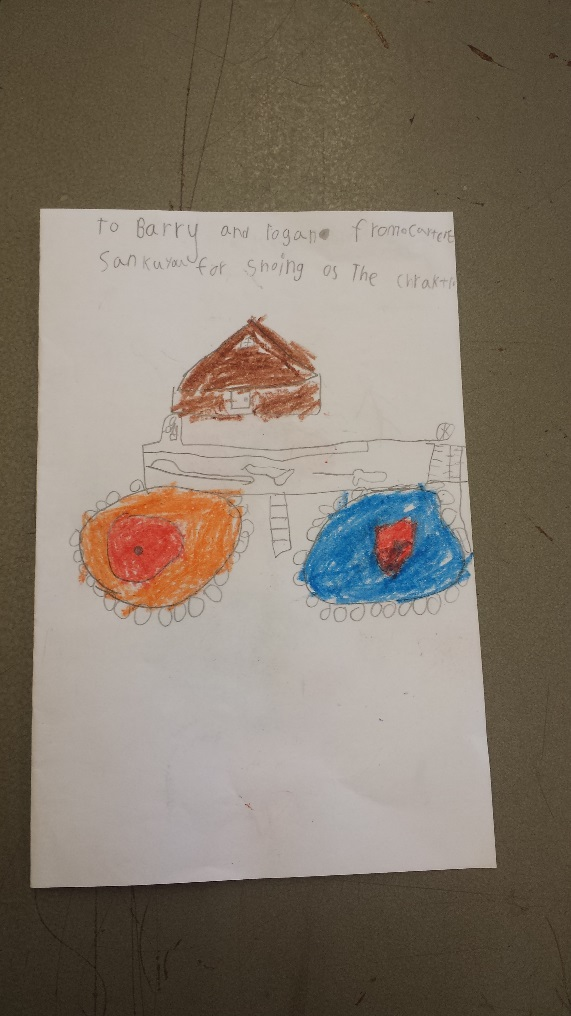 to Barry and rogan from Carter
Sankuyou for Shoing os The chrakt